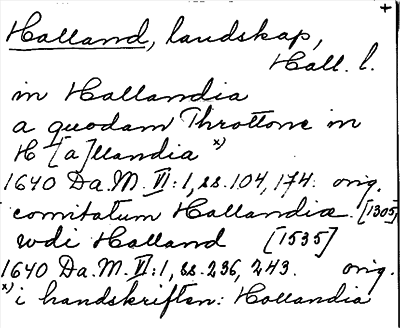 +
Halland, landskap,
Hall. l.
in Hallandia
a quodam Throttone in
H[a]llandia x)
1640 Da. M. VI:1, ss. 104, 174. orig.
comitatum Hallandiæ. [1305]
udi Halland [1535]
1640 Da. M. VI:1, ss. 236, 243. orig.
x) i handskriften: Hollandia